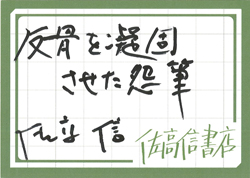 反骨を凝固
させた怨筆
佐高信
佐高信書店